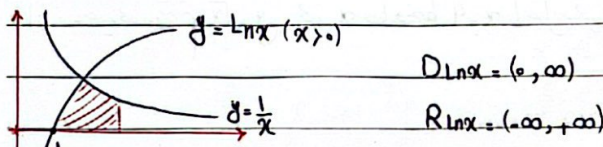 y = Lnx (x>0)
D Lnx = (0, ∞)
y = 1/x
R Lnx = (-∞, +∞)
1